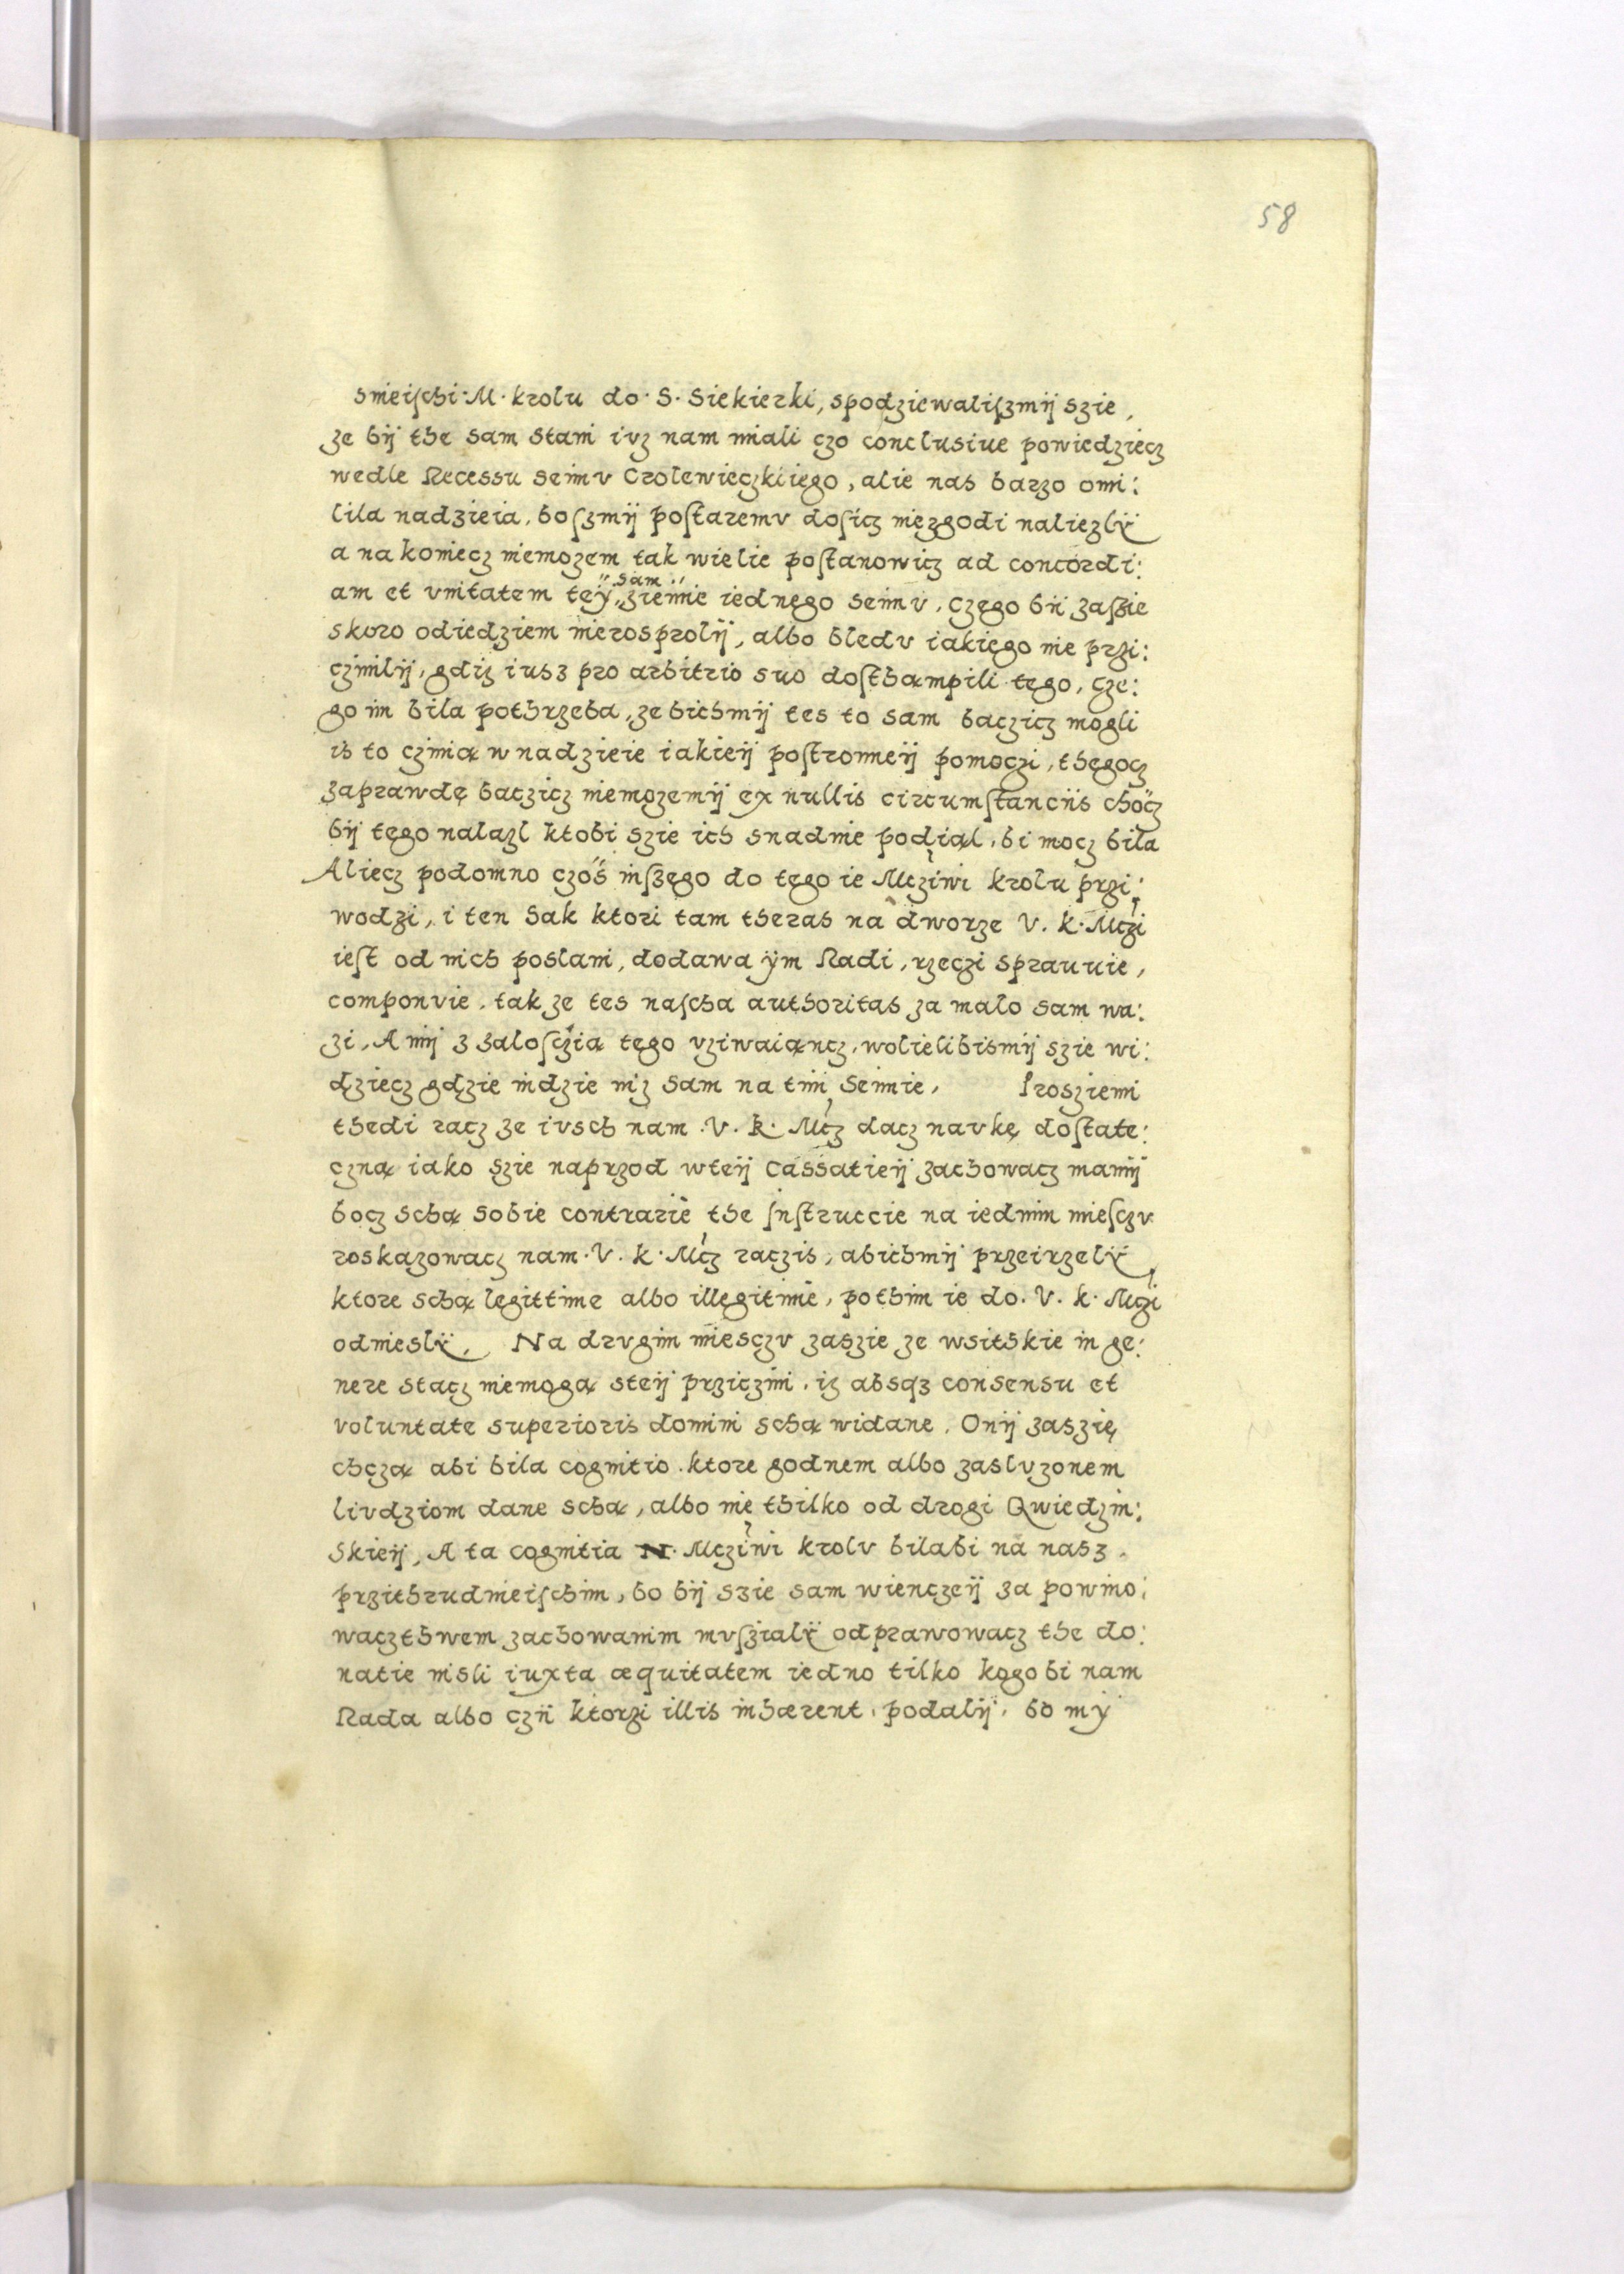 58
snieischi M. krolu do S. Siekierki, spodziewaliszmÿ szie,
ze bÿ the sam stani ivz nam miali czo conclusiue powiedziecz
wedle Recessu seimv Crolewieczkiiego, alie nas barzo omi:
lila nadzieia, boszmÿ postaremv dosicz niezgodi naliezlÿ
a na koniecz niemozem tak wielie postanowicz ad concordi:
am et vnitatem teÿ sam ziemie iednego seimv, czego bÿ zaszie
skoro odiedziem nierosprolÿ, albo bledv iakiego nie przi:
czinilÿ, gdiz iusz pro arbitrio suo dosthampili tego, cze:
go im bila pothrzeba, ze bichmÿ tes to sam baczicz mogli
is to czinia w nadzieie iakieÿ postronneÿ pomoczi, thegocz
zaprawdę baczicz niemozemÿ ex nullis circumstanciis chocz
bÿ tego nalazl ktobi szie ich snadnie podial, bi mocz bila
Aliecz podomno czos inszego do tego ie Mcziwi krolu przi:
wodzi, i ten Hak ktori tam theras na dworze V. k. Mczi
iest od nich poslani, dodawa ÿm Radi, rzeczi sprauuie,
componvie, tak ze tes nascha authoritas za malo sam wa:
zi, A mÿ z zaloscia tego vziwaiancz, wolielibismÿ szie wi:
dziecz gdzie indzie niz sam na tim seimie, Prosziemi
thedi racz ze ivsch nam V. k. Mcz dacz navkę dostate:
czna iako szie naprzod wteÿ Cassatieÿ zachowacz mamÿ
bocz scha sobie contrarie the Instruccie na iednim miesczv
roskazowacz nam V. k. Mcz raczis, abichmÿ przeirzelÿ
ktore scha legittime albo illegitime, pothim ie do V. k. Mczi
odnieslÿ, Na drvgim miesczv zaszie ze wsitskie in ge:
nere stacz niemoga steÿ prziczini, iz absqz consensu et
voluntate superioris domini scha widane. Onÿ zaszię
chcza abi bila cognitio ktore godnem albo zaslvzonem
livdziom dane scha, albo nie thilko od drogi Qwiedzin:
skieÿ, A ta cognitia N. Mcziwi krolv bilabi na nasz
przithrudnieischim, bo bÿ szie sam wienczeÿ za powino:
waczthwem zachowanim mvszialÿ odprawowacz the do:
natie nisli iuxta æquitatem iedno tilko kogo bi nam
Rada albo czÿ ktorzi illis inhærent, podalÿ, bo mÿ